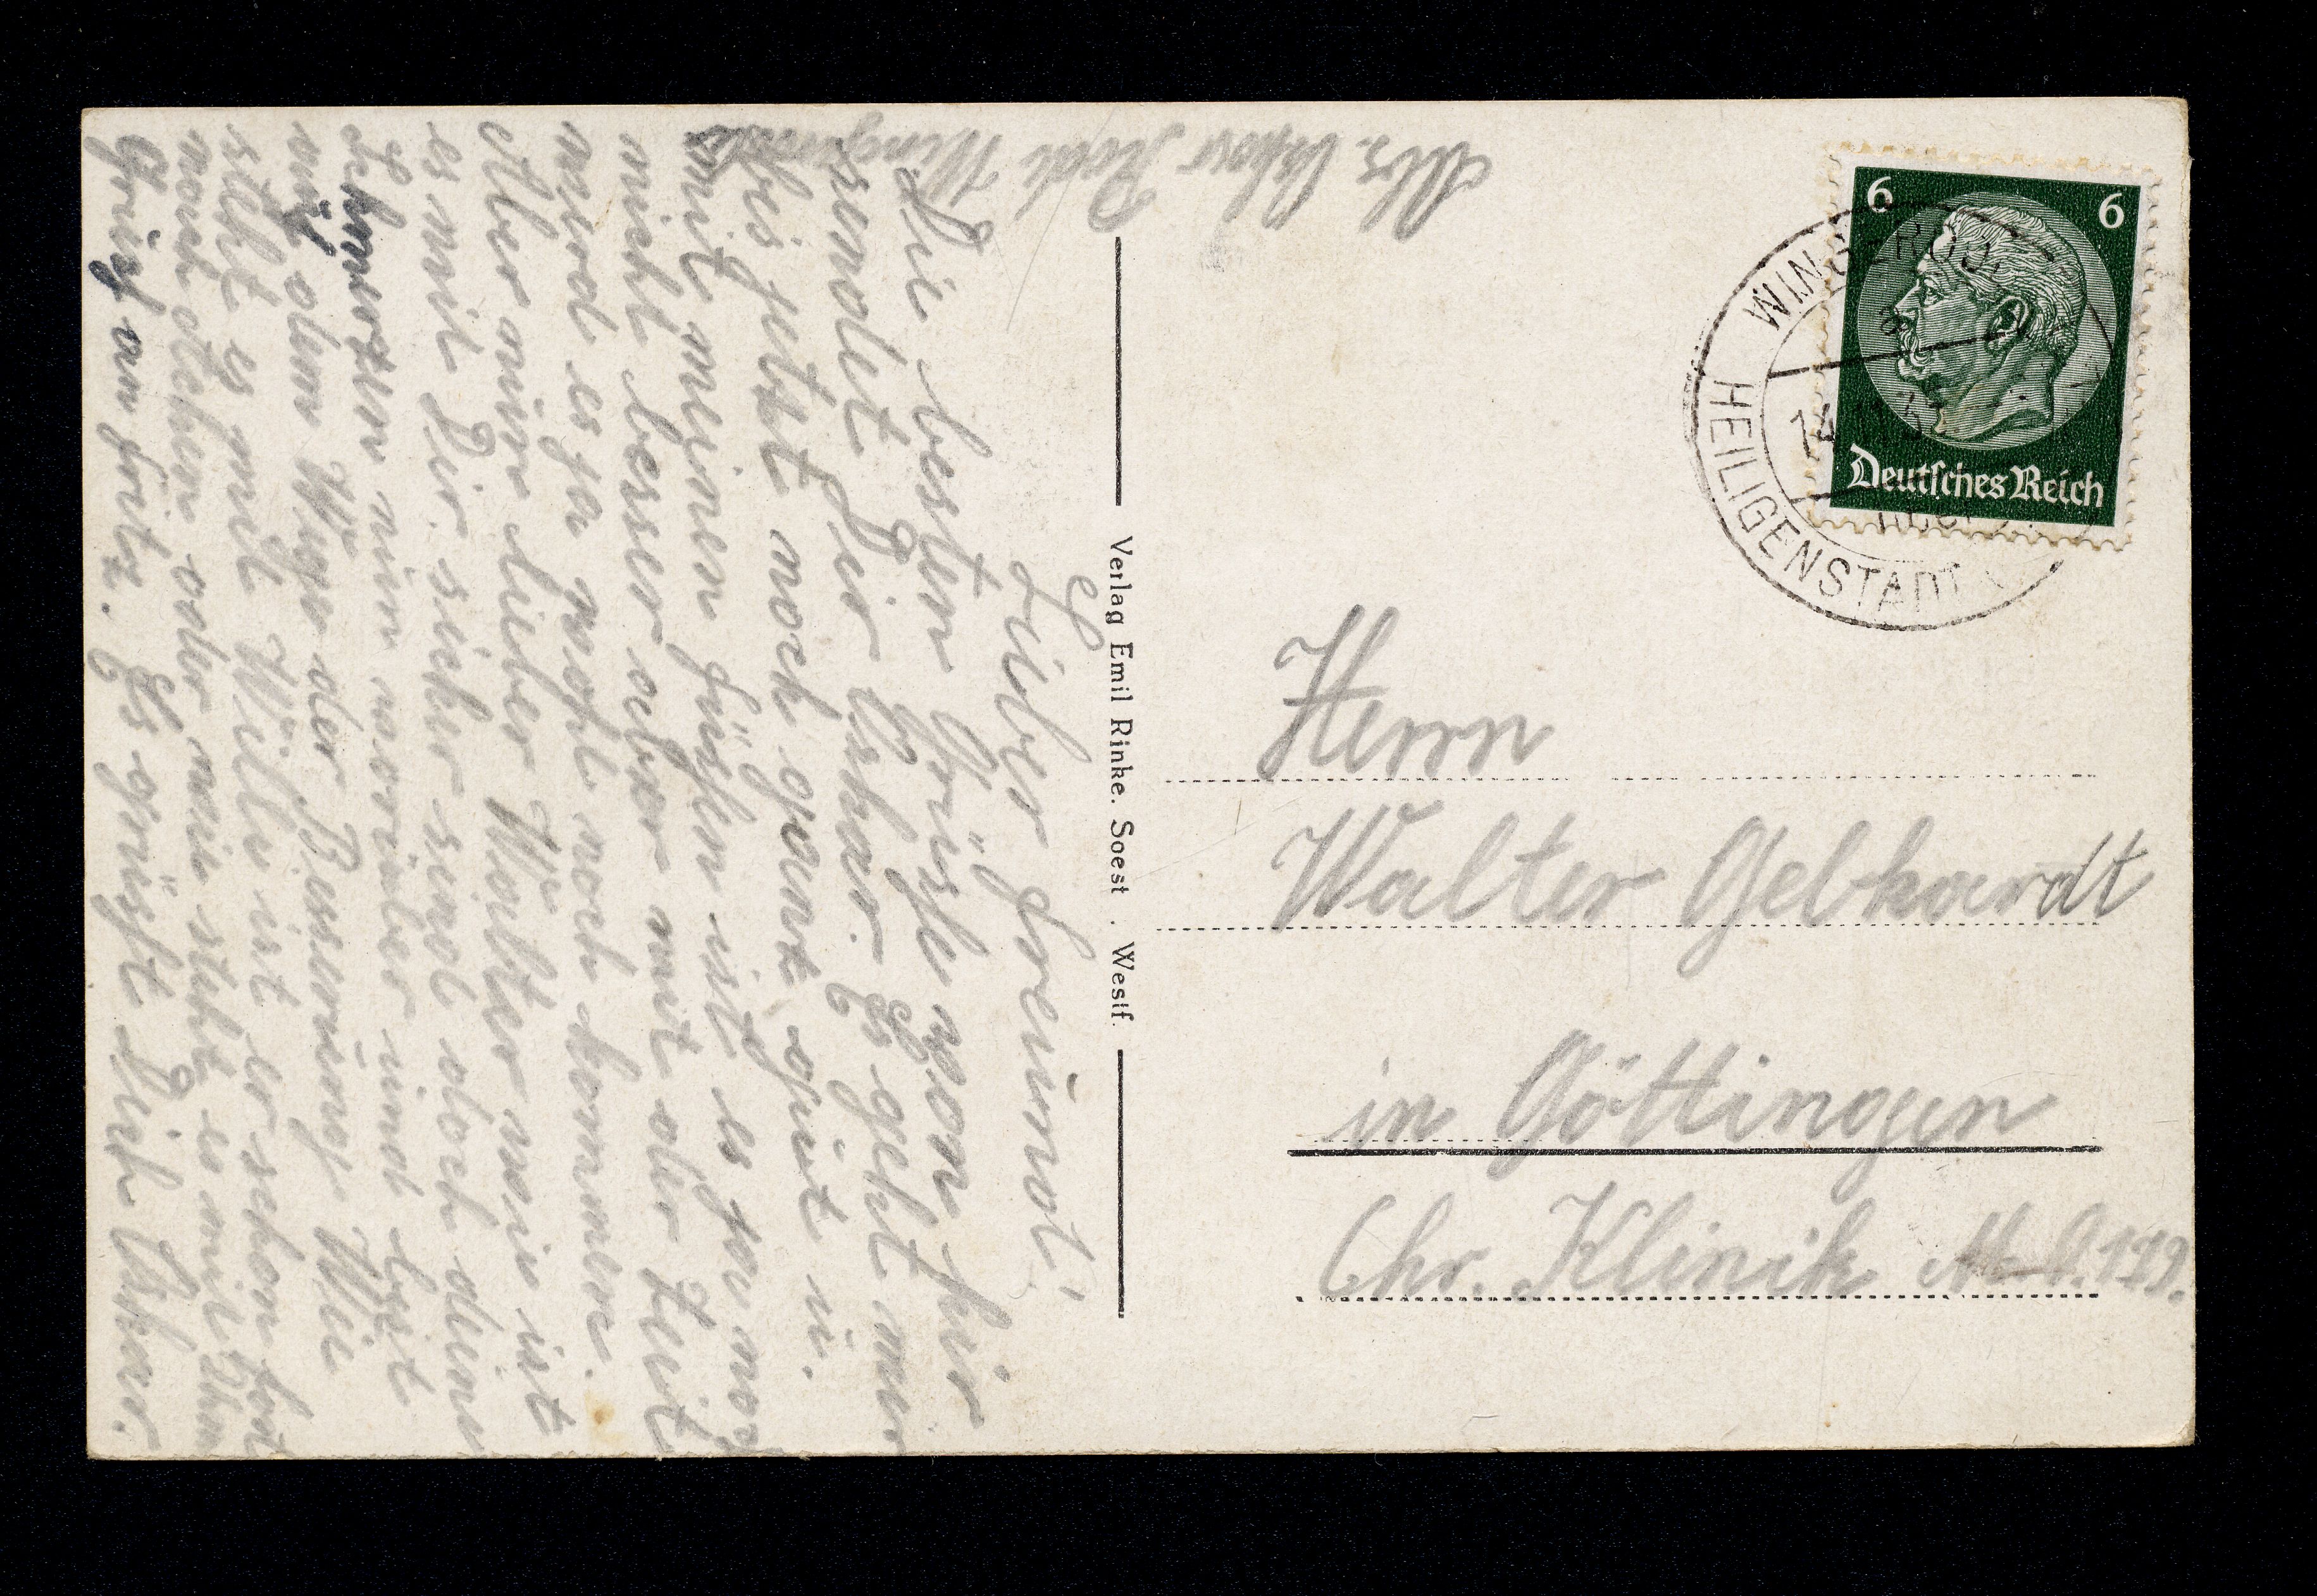 Abs. Oskar Rode Wingerode
6 6
Deutsches Reich
WINGEROD
HEILIGENSTADT
14
Herrn
Walter Gebhardt
in Göttingen
Chr. Klinik 179.
Verlag Emil Rinke. Soest. Westf.
Lieber Freund!
Die besten Grüße von hir
sendet Dir Oskar. Es geht mir
bis jetzt noch ganz gut u.
mit meinen Füßen ist es ja noch
nicht besser aber mit der Zeit
wird es ja wohl noch kommen.
Aber nun lieber Walter wie ist
es mit Dir sicher sind doch deine
Schmerzen nun vorüber und bist
auf dem Wege der Besserung. Wie
steht es mit Willi ist er schon
noch oder wie steht es mit
Gruß an Fritz. Es grüßt Dich Oskar.